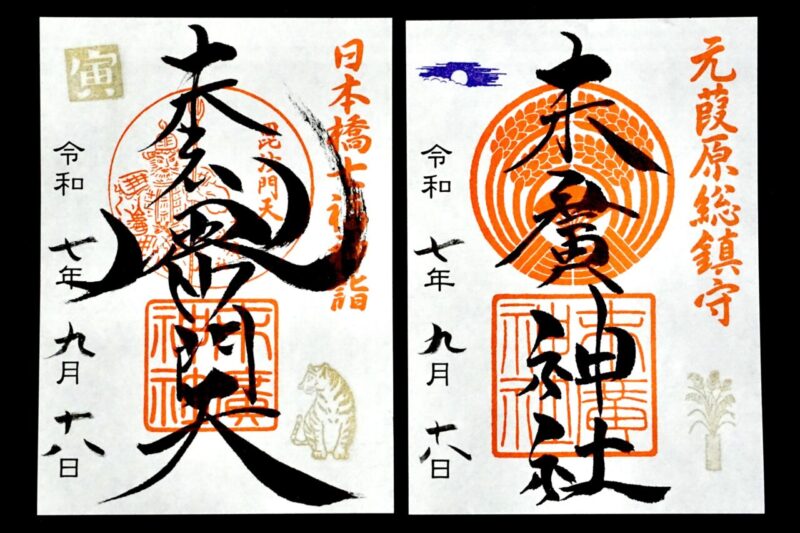 日本橋七福神詣
毘沙門天
末廣毘沙門天
末廣神社
寅
令和七年九月十八日
元葭原総鎮守
末廣神社
末廣神社
令和七年九月十八日